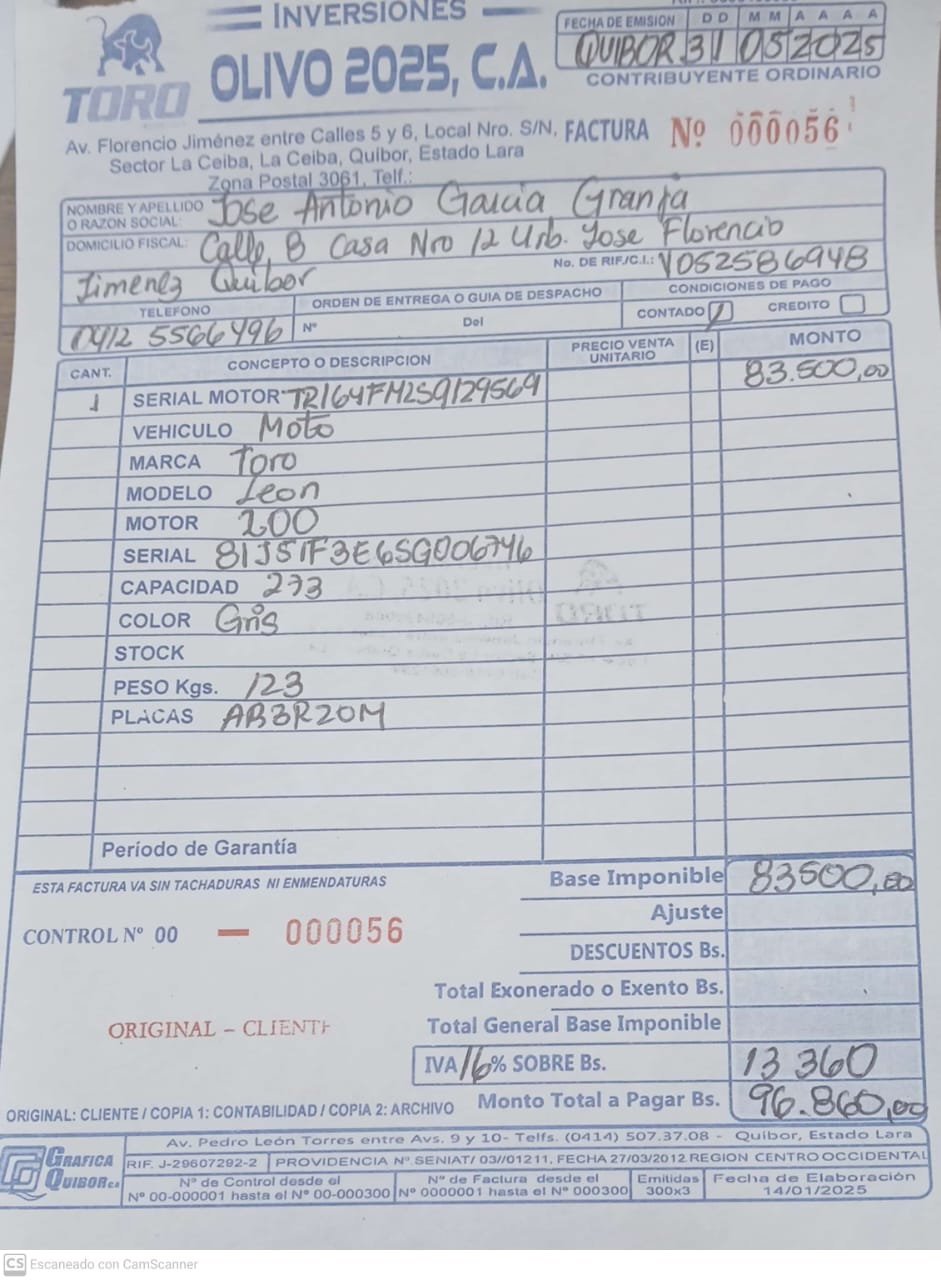 INVERSIONES
OLIVO 2025, C.A.
TORO
FECHA DE EMISIÓN D D M M A A A A
QUIBOR 31 05 2025
CONTRIBUYENTE ORDINARIO
Av. Florencio Jiménez entre Calles 5 y 6, Local Nro. S/N,
Sector La Ceiba, La Ceiba, Quibor, Estado Lara
Zona Postal 3061, Telf.:
FACTURA Nº 000056
NOMBRE Y APELLIDO O RAZON SOCIAL: Jose Antonio Garcia Granja
DOMICILIO FISCAL: Calle 8 Casa Nro 12 Urb. Jose Florencio
Jimenez Quibor No. DE RIF./C.I.: V052586948
TELEFONO ORDEN DE ENTREGA O GUIA DE DESPACHO CONDICIONES DE PAGO
0412 5566496 Nº Del CONTADO CREDITO
CANT. CONCEPTO O DESCRIPCION PRECIO VENTA UNITARIO (E) MONTO
1 SERIAL MOTOR TR164FM2S9129569 83.500,00
VEHICULO Moto
MARCA Toro
MODELO Leon
MOTOR 200
SERIAL 81JS1F3E6SG006746
CAPACIDAD 273
COLOR Gris
STOCK
PESO Kgs. 123
PLACAS AB3R20M
Período de Garantía
ESTA FACTURA VA SIN TACHADURAS NI ENMENDATURAS
Base Imponible 83500,00
Ajuste
CONTROL Nº 00 — 000056
DESCUENTOS Bs.
Total Exonerado o Exento Bs.
ORIGINAL – CLIENTE
Total General Base Imponible
IVA 16% SOBRE Bs. 13 360
ORIGINAL: CLIENTE / COPIA 1: CONTABILIDAD / COPIA 2: ARCHIVO
Monto Total a Pagar Bs. 96.860,00
GRAFICA QUIBOR C.A
Av. Pedro León Torres entre Avs. 9 y 10- Telfs. (0414) 507.37.08 - Quibor, Estado Lara
RIF. J-29607292-2 PROVIDENCIA Nº SENIAT/ 03//01211, FECHA 27/03/2012 REGION CENTRO OCCIDENTAL
Nº de Control desde el Nº 00-000001 hasta el Nº 00-000300
Nº de Factura desde el Nº 0000001 hasta el Nº 000300
Emitidas 300x3
Fecha de Elaboración 14/01/2025
CS Escaneado con CamScanner